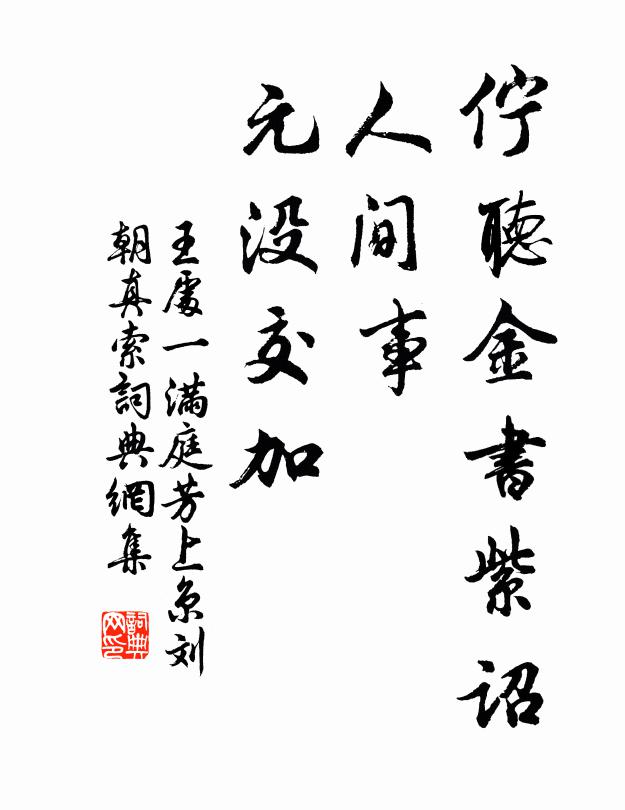 佇聽金書紫詔
人间事
元没交加
王處一满庭芳上京刘
朝真索詞典網集
詞典网印